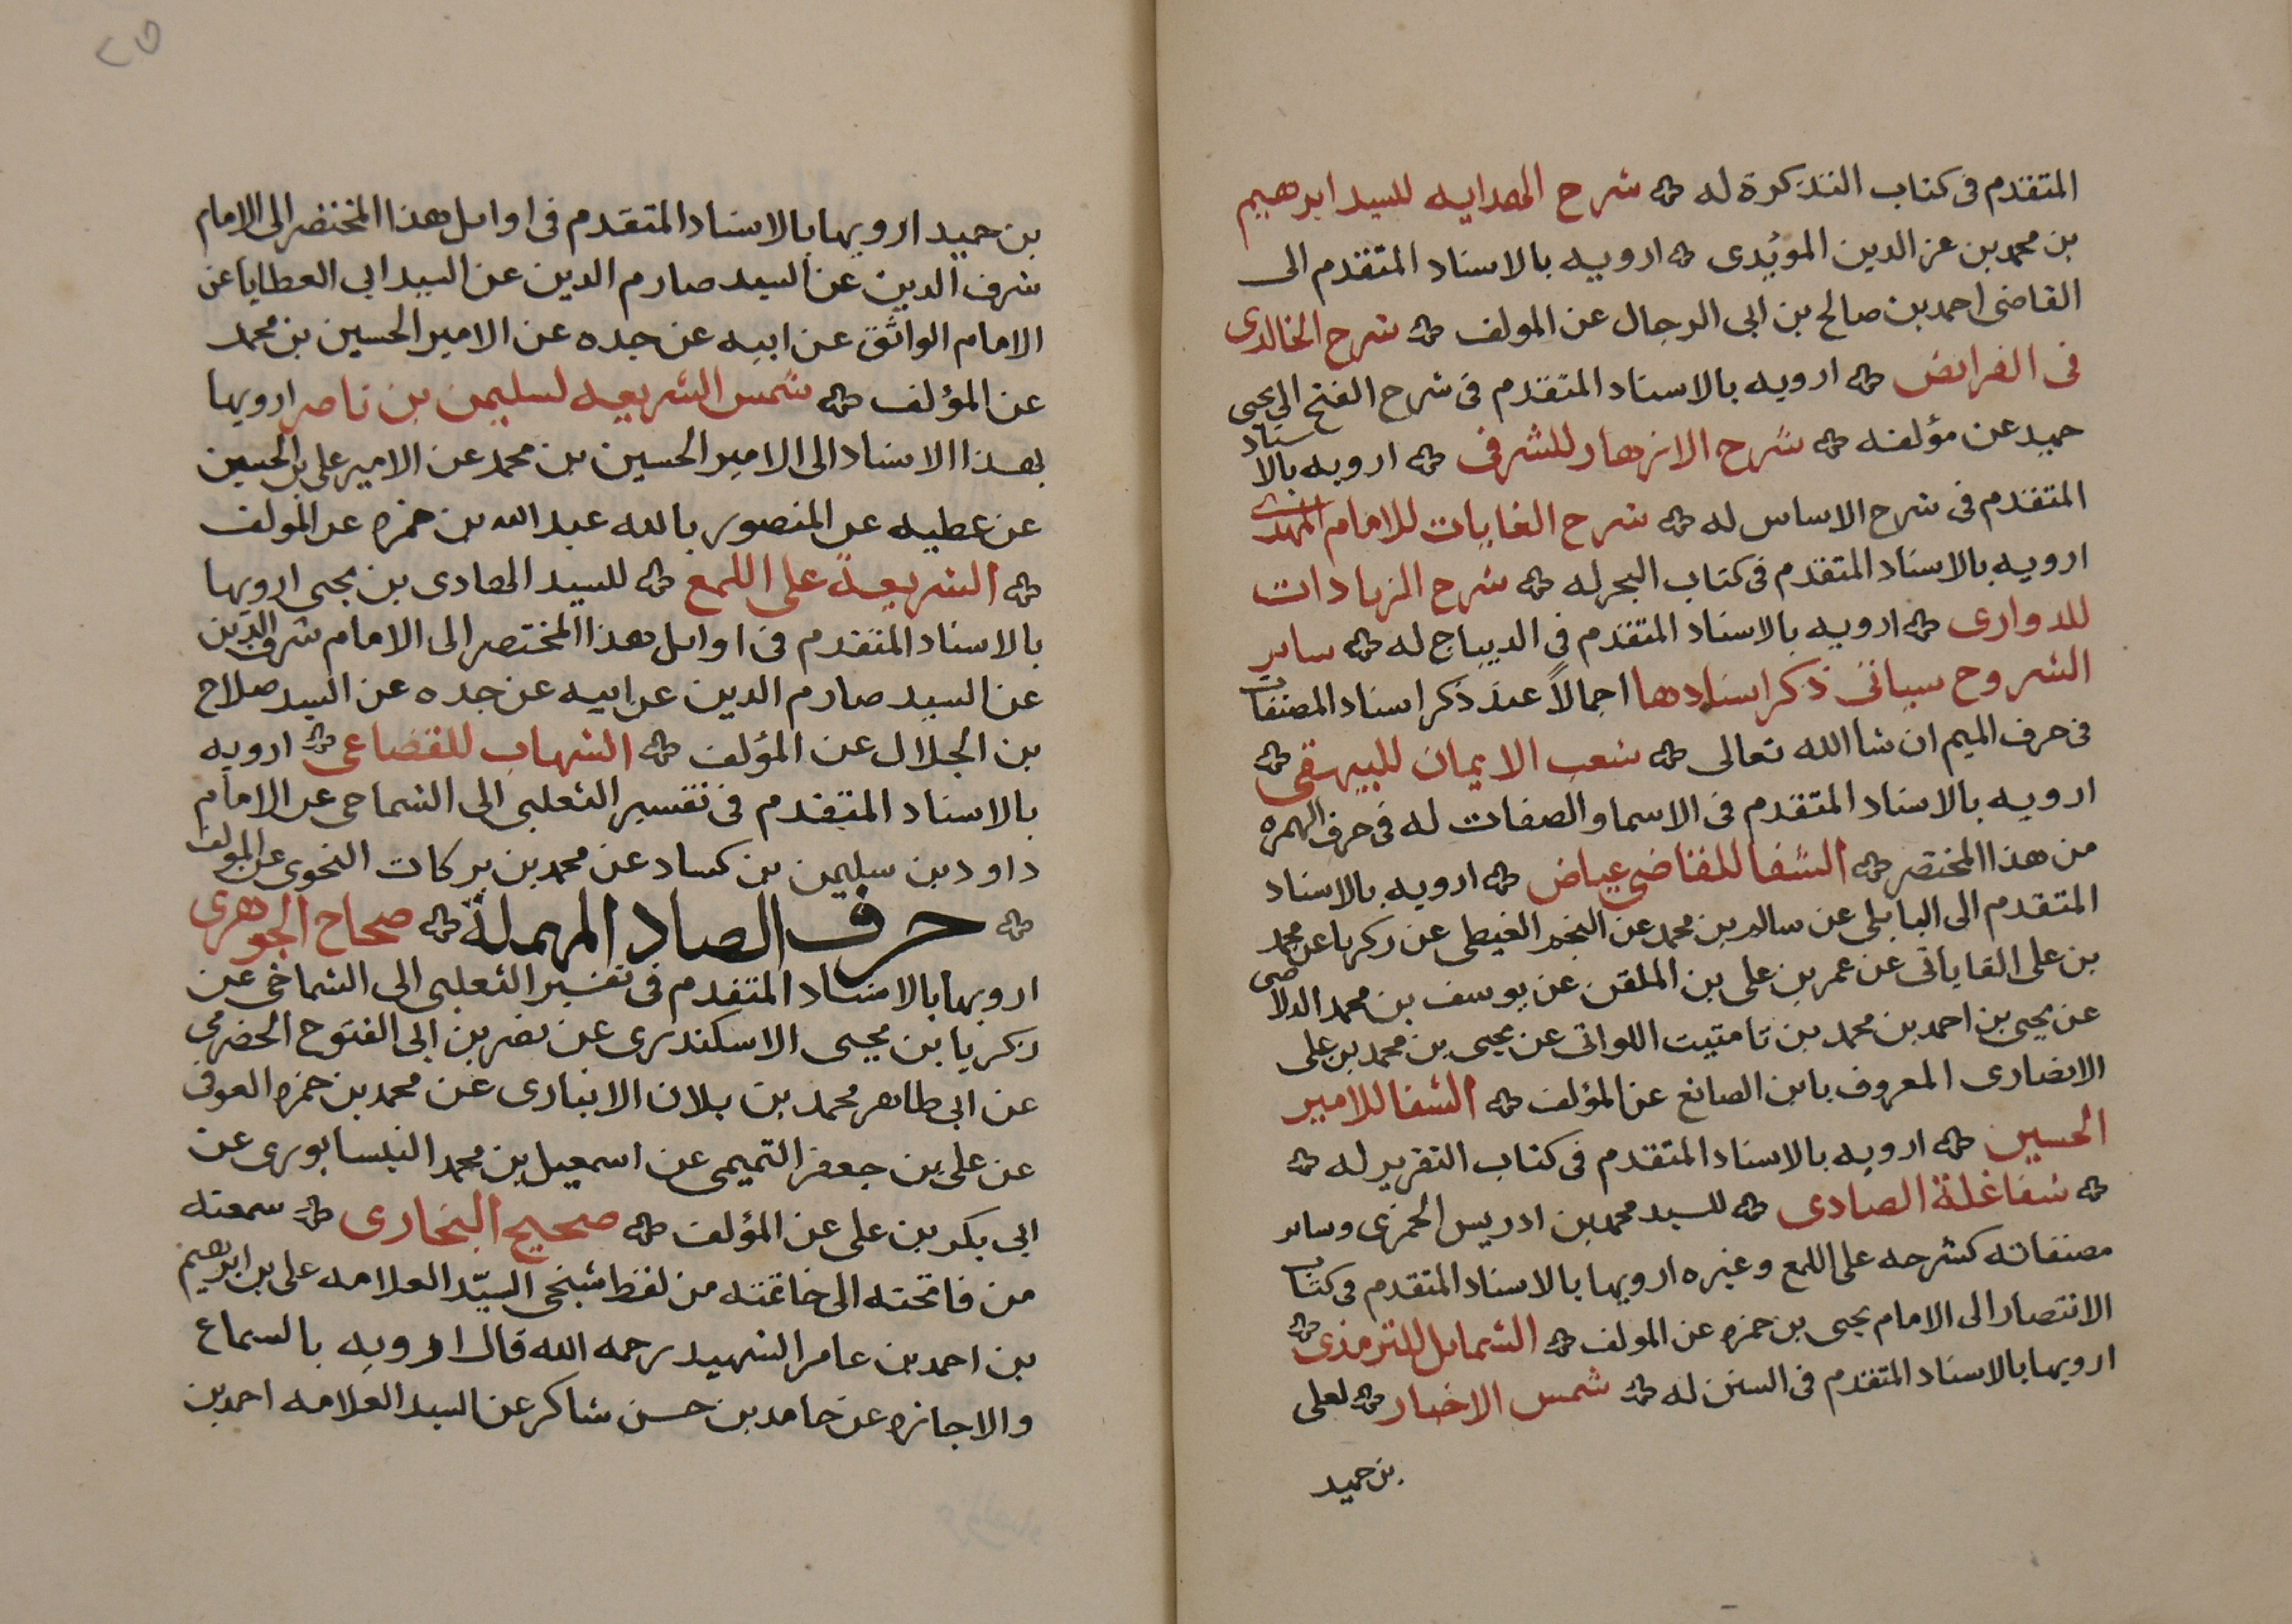 المتقدم فى كتاب التذكرة له شرح الهدايه للسيد ابرهيم
بن محمد بن عز الدين المؤيدى ارويه بالاسناد المتقدم الى
القاضى احمد بن صالح بن ابى الرجال عن المولف شرح الخالدى
فى الفرائض ارويه بالاسناد المتقدم فى شرح الفتح الى يحيى
حميد عن مؤلفه شرح الازهار للشرفى ارويه بالاسناد
المتقدم فى شرح الاساس له شرح الغايات للامام المهدى
ارويه بالاسناد المتقدم فى كتاب البحر له شرح الزيادات
للدوارى ارويه بالاسناد المتقدم فى الديباج له ساير
الشروح سياتى ذكر اسنادها اجمالاً عند ذكر اسناد المصنفات
فى حرف الميم ان شا الله تعالى شعب الايمان للبيهقى
ارويه بالاسناد المتقدم فى الاسما والصفات له فى حرف الهمزه
من هذا المختصر الشفا للقاضى عياض ارويه بالاسناد
المتقدم الى البابلى عن سالم بن محمد عن النجم الغيطى عن زكريا عن محمد
بن على القاياتى عن عمر بن على بن الملقن عن يوسف بن محمد الدلاصى
عن يحيى بن احمد بن محمد بن تامتيت اللواتى عن يحيى بن محمد بن على
الانصارى المعروف بابن الصائغ عن المؤلف الشفا للامير
الحسين ارويه بالاسناد المتقدم فى كتاب التقرير له
شفا غلة الصادى للسيد محمد بن ادريس الحمزى وساير
مصنفاته كشرحه على اللمع وغيره ارويها بالاسناد المتقدم فى كتاب
الانتصار الى الامام يحيى بن حمزه عن المولف الشمايل للترمذى
ارويها بالاسناد المتقدم فى السنن له شمس الاخبار لعلى
بن حميد
٢٥
بن حميد ارويها بالاسناد المتقدم فى اوايل هذا المختصر الى الامام
شرف الدين عن السيد صارم الدين عن السيد ابى العطايا عن
الامام الواثق عن ابيه عن جده عن الامير الحسين بن محمد
عن المؤلف شمس الشريعه لسليمن بن ناصر ارويها
بهذا الاسناد الى الامير الحسين بن محمد عن الامير على بن الحسين
عن عطيه عن المنصور بالله عبد الله بن حمزه عن المولف
الشريعة على اللمع للسيد الهادى بن يحيى ارويها
بالاسناد المتقدم فى اوايل هذا المختصر الى الامام شرف الدين
عن السيد صارم الدين عن ابيه عن جده عن السيد صلاح
بن الجلال عن المؤلف الشهاب للقضاعى ارويه
بالاسناد المتقدم فى تفسير الثعلبى الى الشماحى عن الامام
داود بن سليمن بن كساد عن محمد بن بركات النحوى عن المولف
حرف الصاد المهملة صحاح الجوهرى
ارويها بالاسناد المتقدم فى تفسير الثعلبى الى الشماخى عن
زكريا بن يحيى الاسكندرى عن نصر بن ابى الفتوح الحضرمى
عن ابى طاهر محمد بن بلان الانبارى عن محمد بن حمزه العوفى
عن على بن جعفر التميمى عن اسمعيل بن محمد النيسابورى عن
ابى بكر بن على عن المؤلف صحيح البخارى سمعته
من فاتحته الى خاتمته من لفظ شيخى السيّد العلامه على بن ابرهيم
بن احمد بن عامر الشهيد رحمه الله قال ارويه بالسماع
والاجازه عن حامد بن حسن شاكر عن السيد العلامه احمد بن